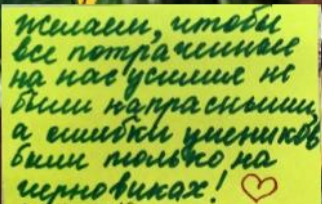 Желаем, чтобы
все потраченные
на нас усилие не
были напрасными,
а ошибки учеников
были только на
черновиках! ♡